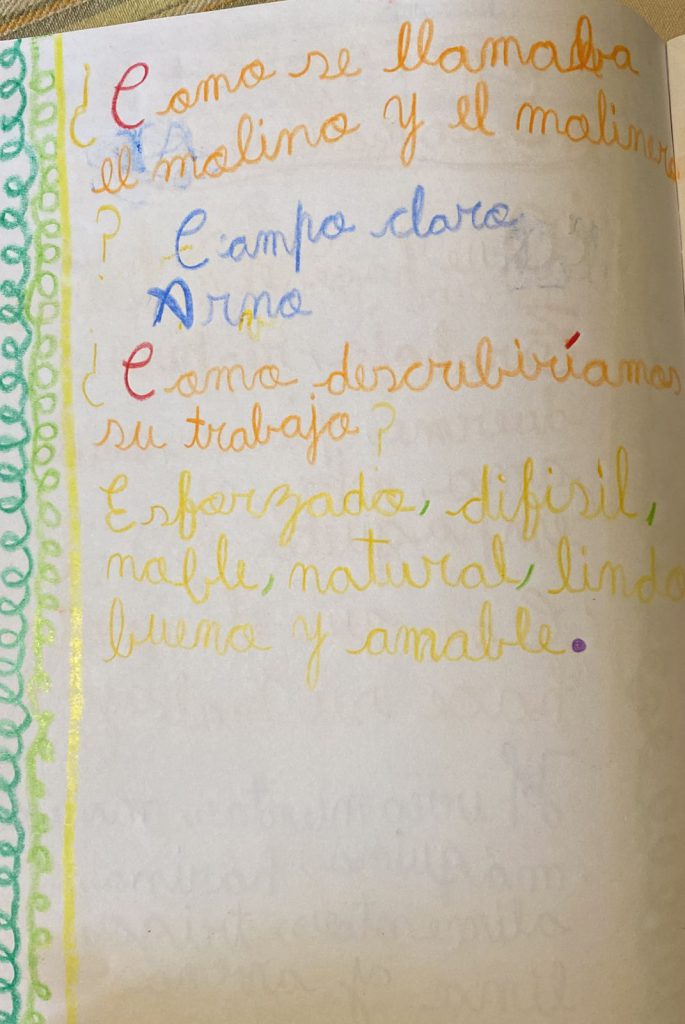 ¿Como se llamaba
el molino y el molinero
? Campo claro
Arno
¿Como describiríamos
su trabajo?
Esforzado, difisil,
noble, natural, lindo
bueno y amable.